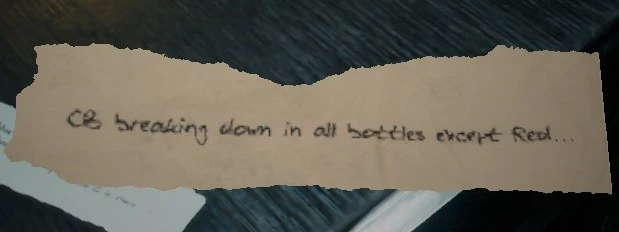 CB breaking down in all bottles except Red...